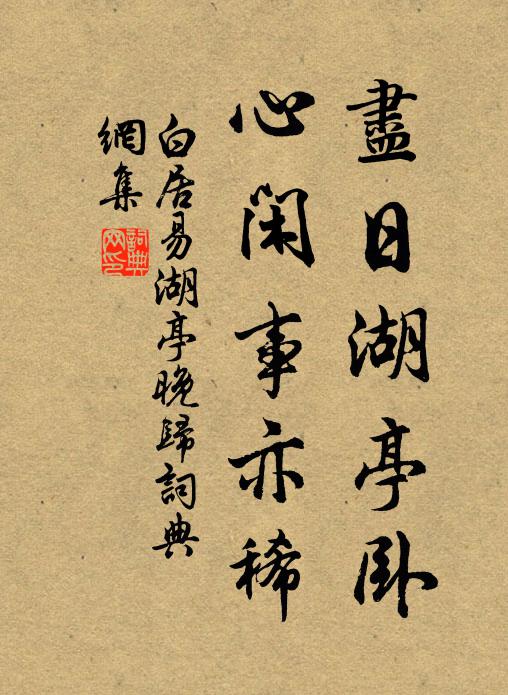 盡日湖亭卧
心閑事亦稀
白居易湖亭晚歸詞典
網集
詞典網印